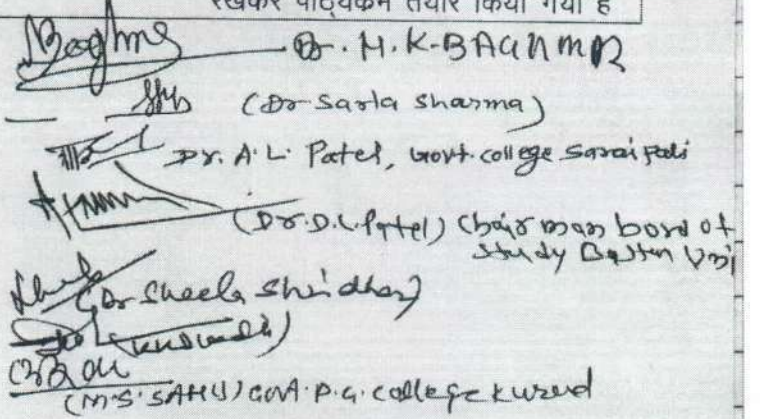 रखकर पाठ्यक्रम तैयार किया गया है
Dr. M. K. BAGHMAR
(Dr Sarla Sharma)
Dr. A. L. Patel, Govt. college Saraipali
(Dr. D. L. Patel) Chairman bord of
study Baster Uni
(Dr Sheela Shridhar)
(M. S. SAHU) Govt. P. G. college Kurud